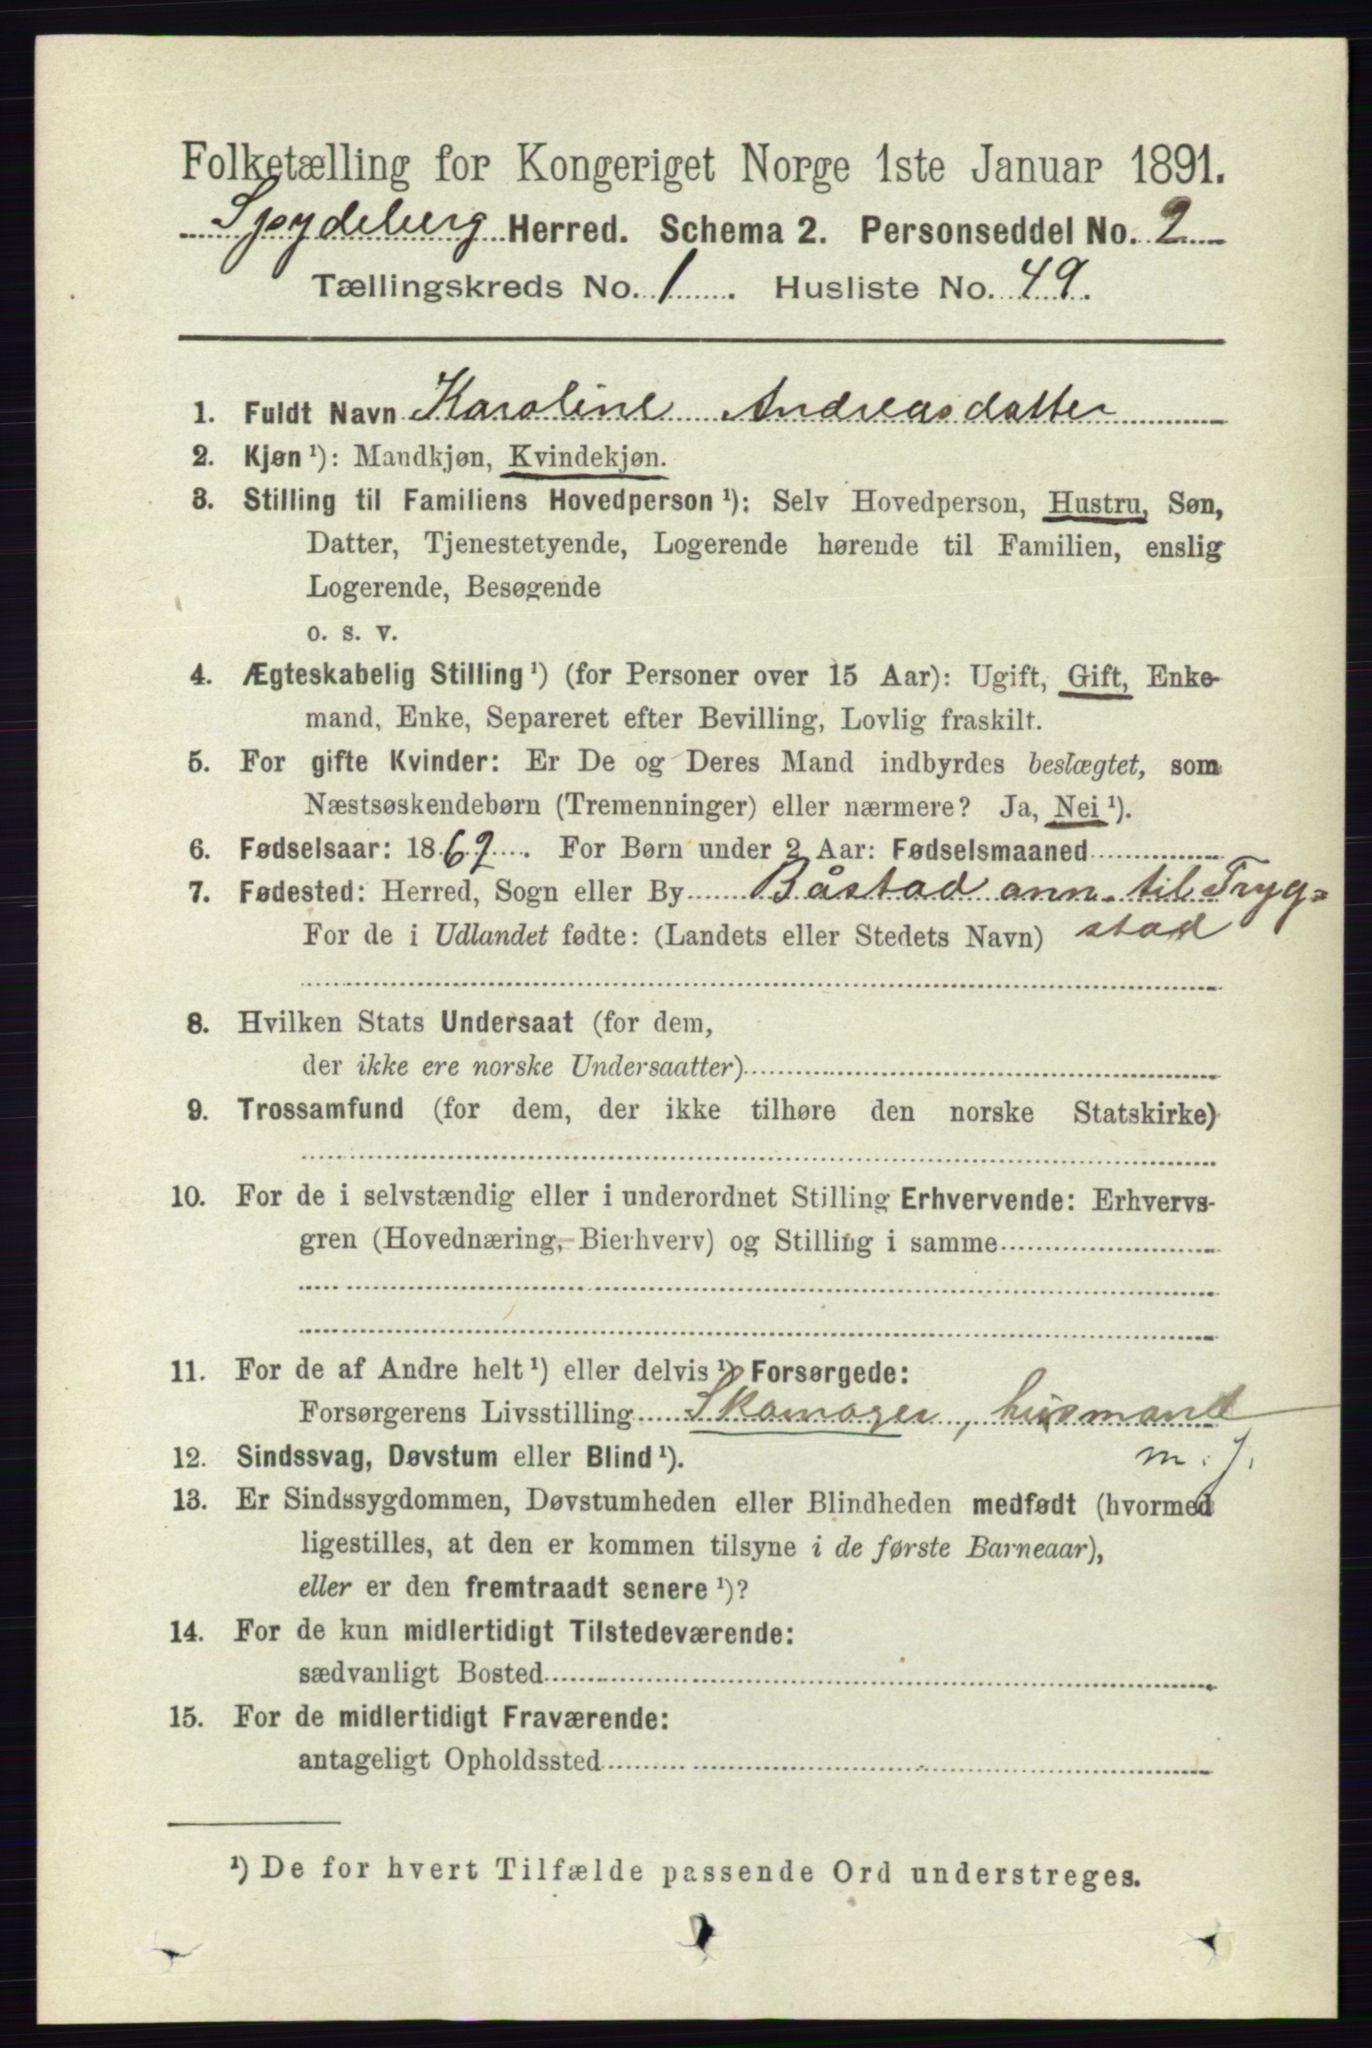 Folketælling for Kongeriget Norge 1ste Januar 1891.
Spydeberg Herred. Schema 2. Personseddel No. 2
Tællingskreds No. 1. Husliste No. 49.
1. Fuldt Navn Karoline Andreasdatter
2. Kjøn ¹): Mandkjøn, Kvindekjøn.
3. Stilling til Familiens Hovedperson ¹): Selv Hovedperson, Hustru, Søn,
Datter, Tjenestetyende, Logerende hørende til Familien, enslig
Logerende, Besøgende
o. s. v.
4. Ægteskabelig Stilling ¹) (for Personer over 15 Aar): Ugift, Gift, Enke-
mand, Enke, Separeret efter Bevilling, Lovlig fraskilt.
5. For gifte Kvinder: Er De og Deres Mand indbyrdes beslægtet, som
Næstsøskendebørn (Tremenninger) eller nærmere? Ja, Nei ¹).
6. Fødselsaar: 1862. For Børn under 2 Aar: Fødselsmaaned
7. Fødested: Herred, Sogn eller By Båstad ann. til Tryg=
For de i Udlandet fødte: (Landets eller Stedets Navn) stad
8. Hvilken Stats Undersaat (for dem,
der ikke ere norske Undersaatter)
9. Trossamfund (for dem, der ikke tilhøre den norske Statskirke)
10. For de i selvstændig eller i underordnet Stilling Erhvervende: Erhvervs-
gren (Hovednæring, Bierhverv) og Stilling i samme
11. For de af Andre helt ¹) eller delvis ¹) Forsørgede:
Forsørgerens Livsstilling Skomager, husmand
12. Sindssvag, Døvstum eller Blind ¹). m. j.
13. Er Sindssygdommen, Døvstumheden eller Blindheden medfødt (hvormed
ligestilles, at den er kommen tilsyne i de første Barneaar),
eller er den fremtraadt senere ¹)?
14. For de kun midlertidigt Tilstedeværende:
sædvanligt Bosted
15. For de midlertidigt Fraværende:
antageligt Opholdssted
¹) De for hvert Tilfælde passende Ord understreges.